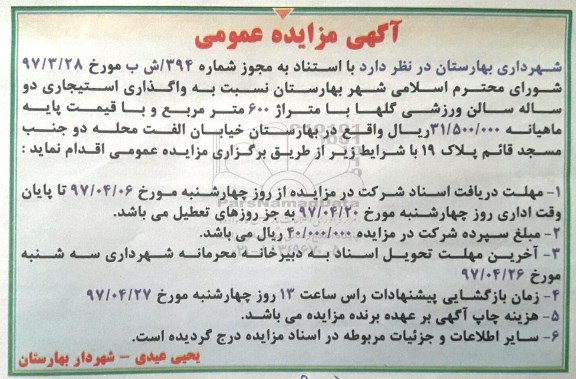 آگهی مزایده عمومی
شهرداری بهارستان در نظر دارد با استناد به مجوز شماره ۳۹۴/ش ب مورخ ۹۷/۳/۲۸
شورای محترم اسلامی شهر بهارستان نسبت به واگذاری استیجاری دو
ساله سالن ورزشی گلها با متراژ ۶۰۰ متر مربع و با قیمت پایه
ماهیانه ۳۱/۵۰۰/۰۰۰ریال واقع در بهارستان خیابان الفت محله دو جنب
مسجد قائم پلاک ۱۹ با شرایط زیر از طریق برگزاری مزایده عمومی اقدام نماید :
۱- مهلت دریافت اسناد شرکت در مزایده از روز چهارشنبه مورخ ۹۷/۰۴/۰۶ تا پایان
وقت اداری روز چهارشنبه مورخ ۹۷/۰۴/۲۰ به جز روزهای تعطیل می باشد.
۲- مبلغ سپرده شرکت در مزایده ۴۰/۰۰۰/۰۰۰ ریال می باشد.
۳- آخرین مهلت تحویل اسناد به دبیرخانه محرمانه شهرداری سه شنبه
مورخ ۹۷/۰۴/۲۶
۴- زمان بازگشایی پیشنهادات راس ساعت ۱۳ روز چهارشنبه مورخ ۹۷/۰۴/۲۷
۵- هزینه چاپ آگهی بر عهده برنده مزایده می باشد.
۶- سایر اطلاعات و جزئیات مربوطه در اسناد مزایده درج گردیده است.
یحیی عیدی - شهردار بهارستان
ParsNamadData